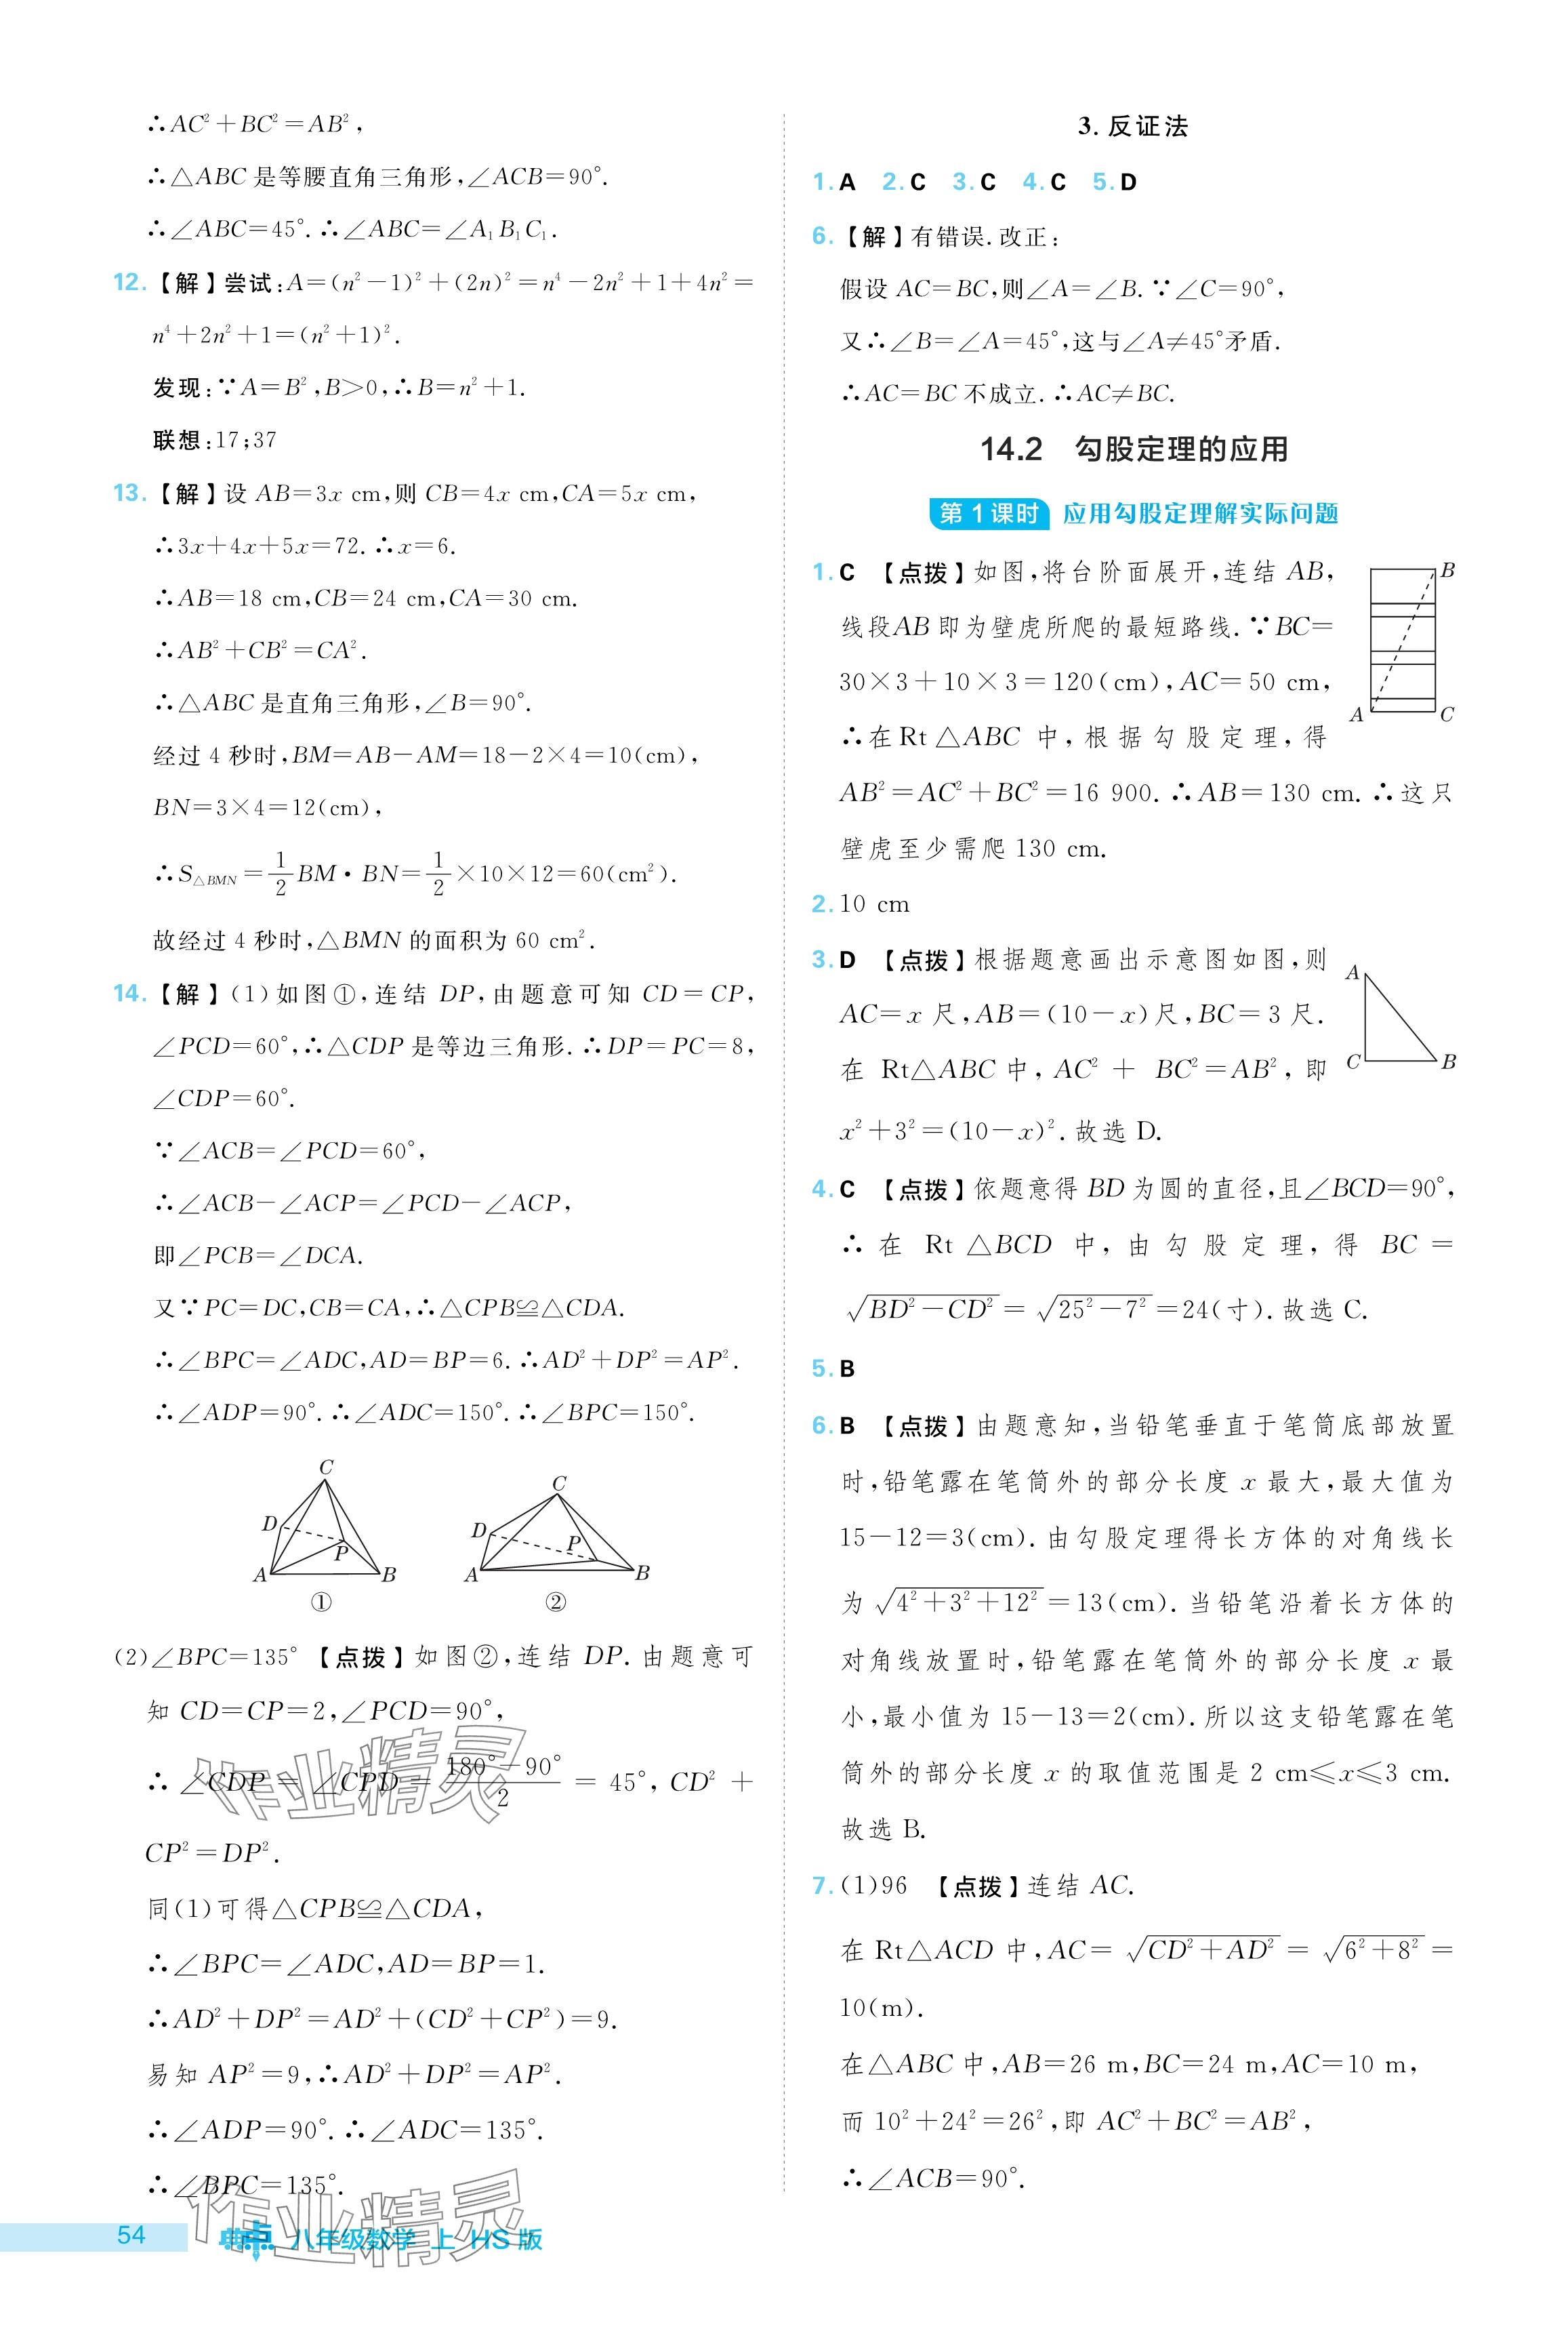 ∴AC²+BC²=AB²,
∴△ABC 是等腰直角三角形,∠ACB=90°.
∴∠ABC=45°.∴∠ABC=∠A₁B₁C₁.
12.【解】尝试:A=(n²-1)²+(2n)²=n⁴-2n²+1+4n²=
n⁴+2n²+1=(n²+1)².
发现:∵A=B²,B>0,∴B=n²+1.
联想:17;37
13.【解】设 AB=3x cm,则 CB=4x cm,CA=5x cm,
∴3x+4x+5x=72.∴x=6.
∴AB=18 cm,CB=24 cm,CA=30 cm.
∴AB²+CB²=CA².
∴△ABC 是直角三角形,∠B=90°.
经过 4 秒时,BM=AB-AM=18-2×4=10(cm),
BN=3×4=12(cm),
∴S△BMN=1/2BM·BN=1/2×10×12=60(cm²).
故经过 4 秒时,△BMN 的面积为 60 cm².
14.【解】(1)如图①,连结 DP,由题意可知 CD=CP,
∠PCD=60°,∴△CDP 是等边三角形.∴DP=PC=8,
∠CDP=60°.
∵∠ACB=∠PCD=60°,
∴∠ACB-∠ACP=∠PCD-∠ACP,
即∠PCB=∠DCA.
又∵PC=DC,CB=CA,∴△CPB≌△CDA.
∴∠BPC=∠ADC,AD=BP=6.∴AD²+DP²=AP².
∴∠ADP=90°.∴∠ADC=150°.∴∠BPC=150°.
C
D
P
A
B
①
C
D
P
A
B
②
(2)∠BPC=135° 【点拨】如图②,连结 DP.由题意可
知 CD=CP=2,∠PCD=90°,
∴∠CDP=∠CPD=(180°-90°)/2=45°,CD²+
CP²=DP².
同(1)可得△CPB≌△CDA,
∴∠BPC=∠ADC,AD=BP=1.
∴AD²+DP²=AD²+(CD²+CP²)=9.
易知 AP²=9,∴AD²+DP²=AP².
∴∠ADP=90°.∴∠ADC=135°.
∴∠BPC=135°.
作业精灵
作业精灵
54 典点 八年级数学 上 HS版
3.反证法
1.A 2.C 3.C 4.C 5.D
6.【解】有错误.改正:
假设 AC=BC,则∠A=∠B.∵∠C=90°,
又∴∠B=∠A=45°,这与∠A≠45°矛盾.
∴AC=BC 不成立.∴AC≠BC.
14.2 勾股定理的应用
第1课时 应用勾股定理解实际问题
1.C 【点拨】如图,将台阶面展开,连结 AB,
线段AB 即为壁虎所爬的最短路线.∵BC=
30×3+10×3=120(cm),AC=50 cm,
∴在 Rt△ABC 中,根据勾股定理,得
AB²=AC²+BC²=16 900.∴AB=130 cm.∴这只
壁虎至少需爬 130 cm.
B
A
C
2.10 cm
3.D 【点拨】根据题意画出示意图如图,则
AC=x 尺,AB=(10-x)尺,BC=3 尺.
在 Rt△ABC 中,AC²+BC²=AB²,即
x²+3²=(10-x)².故选 D.
A
C
B
4.C 【点拨】依题意得 BD 为圆的直径,且∠BCD=90°,
∴在 Rt△BCD 中,由勾股定理,得 BC=
√(BD²-CD²)=√(25²-7²)=24(寸).故选 C.
5.B
6.B 【点拨】由题意知,当铅笔垂直于笔筒底部放置
时,铅笔露在笔筒外的部分长度 x 最大,最大值为
15-12=3(cm).由勾股定理得长方体的对角线长
为√(4²+3²+12²)=13(cm).当铅笔沿着长方体的
对角线放置时,铅笔露在笔筒外的部分长度 x 最
小,最小值为 15-13=2(cm).所以这支铅笔露在笔
筒外的部分长度 x 的取值范围是 2 cm≤x≤3 cm.
故选 B.
7.(1)96 【点拨】连结 AC.
在 Rt△ACD 中,AC=√(CD²+AD²)=√(6²+8²)=
10(m).
在△ABC 中,AB=26 m,BC=24 m,AC=10 m,
而 10²+24²=26²,即 AC²+BC²=AB²,
∴∠ACB=90°.